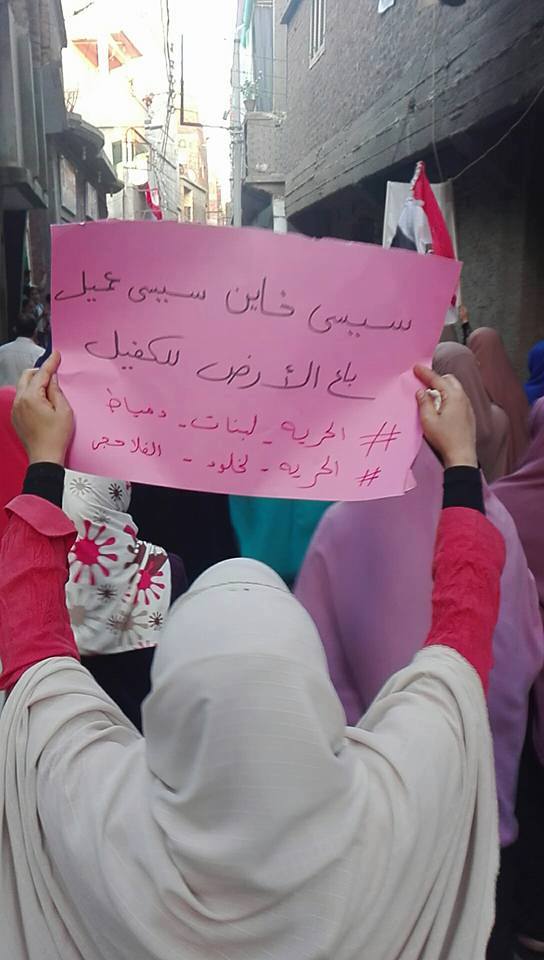 سيسى خاين سيسى عميل
باع الأرض للكفيل
# الحريه - لبنات - دمياط
# الحريه - لخلود - الفلاحجى